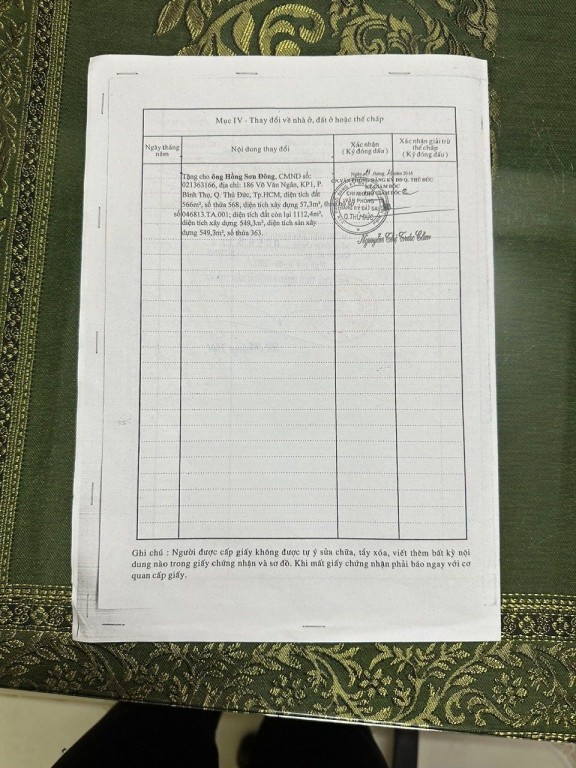 Mục IV - Thay đổi về nhà ở, đất ở hoặc thế chấp
Ngày tháng năm
Nội dung thay đổi
Xác nhận
( Ký đóng dấu )
Xác nhận giải trừ thế chấp
( Ký đóng dấu )
Tặng cho ông Hồng Sơn Đông, CMND số:
021363166, địa chỉ: 186 Võ Văn Ngân, KP1, P.
Bình Thọ, Q. Thủ Đức, Tp.HCM, diện tích đất
566m², số thửa 568, diện tích xây dựng 57,3m²,
số 046813.TA.001; diện tích đất còn lại 1112,4m²,
diện tích xây dựng 549,3m², diện tích sàn xây
dựng 549,3m², số thửa 363.
VĂN PHÒNG
ĐĂNG KÝ ĐẤT ĐAI
Q.THỦ ĐỨC
Ghi chú : Người được cấp giấy không được tự ý sửa chữa, tẩy xóa, viết thêm bất kỳ nội
dung nào trong giấy chứng nhận và sơ đồ. Khi mất giấy chứng nhận phải báo ngay với cơ
quan cấp giấy.